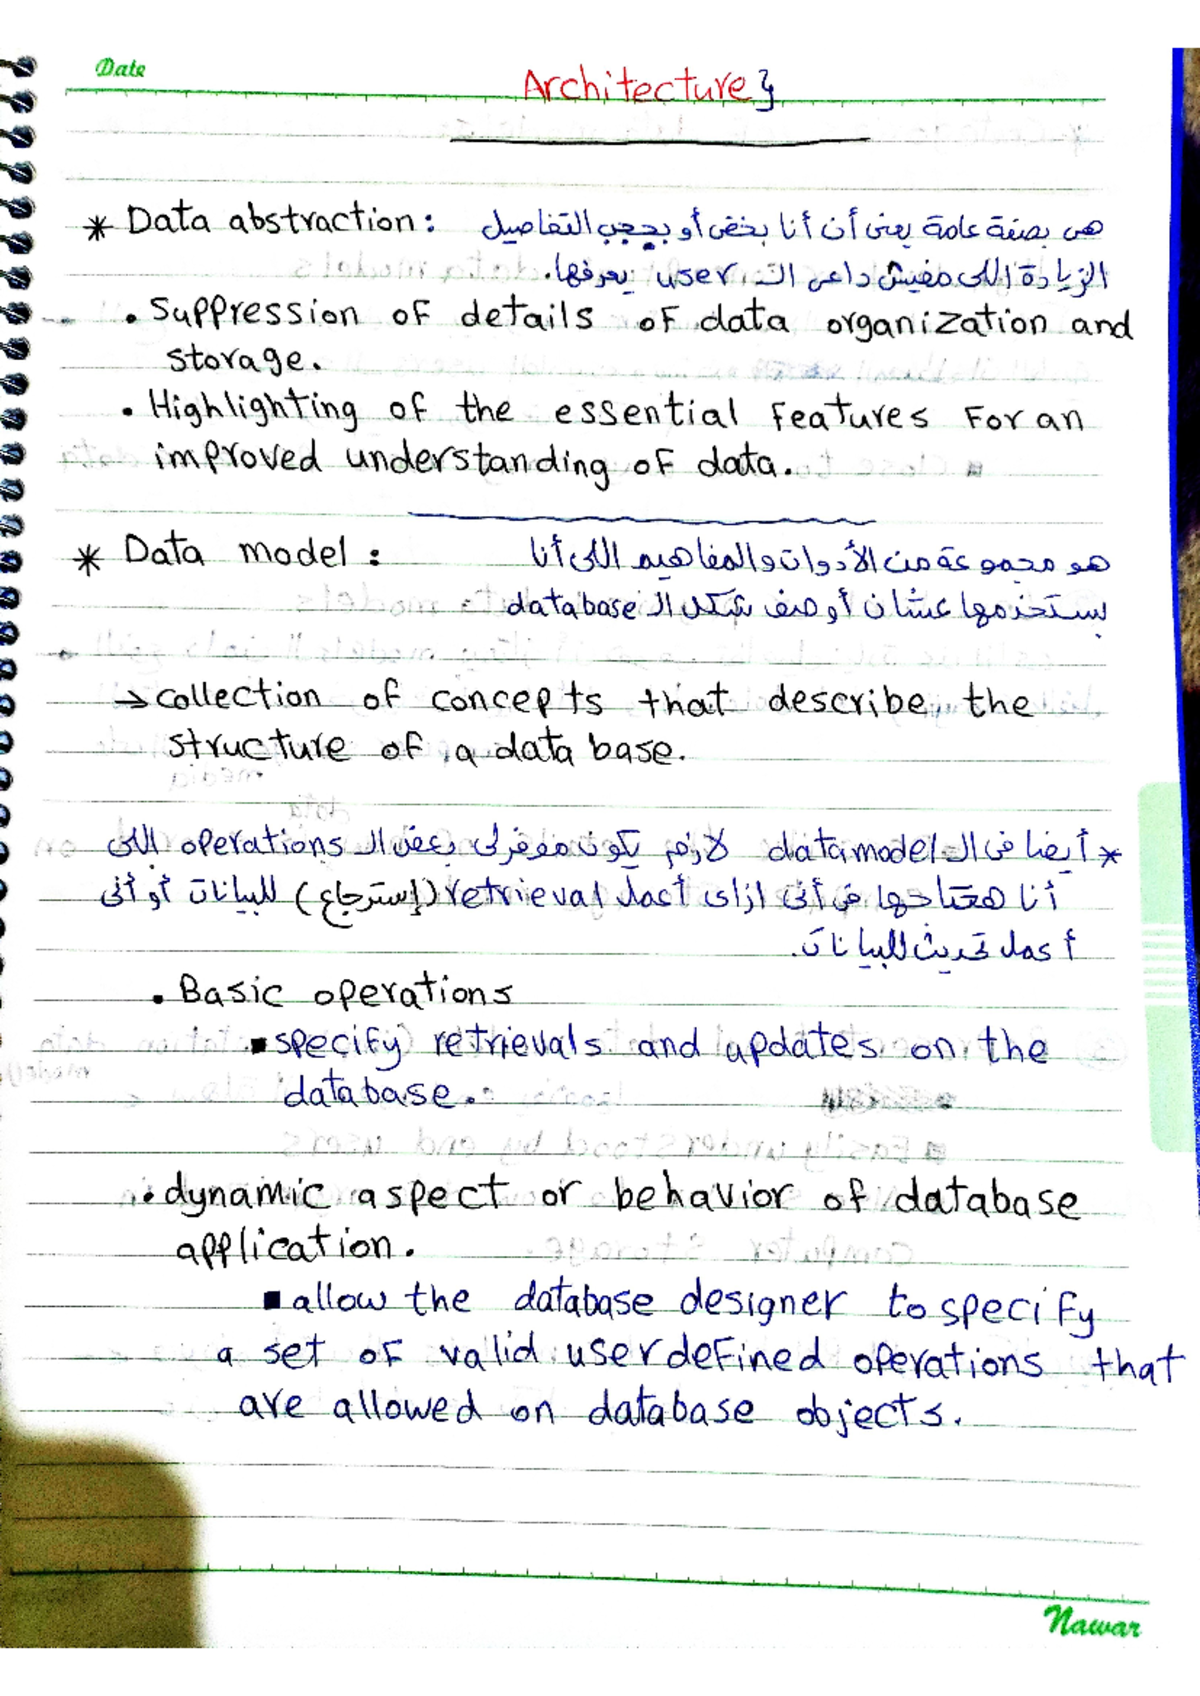 Date
Architecture}
* Data abstraction: هى بصفة عامة يعنى أن أنا بخفى أو بحجب التفاصيل
الزيادة اللى مفيش داعى الـ user يعرفها.
• Suppression of details of data organization and
storage.
• Highlighting of the essential features for an
improved understanding of data.
* Data model: هو مجموعة من الأدوات والمفاهيم اللى أنا
بستخدمها عشان أوصف شكل الـ database
→ collection of concepts that describe the
structure of a data base.
* أيضا فى الـ data model لازم يكون موفرلى بعض الـ operations اللى
أنا هحتاجها فى أنى ازاى أعمل retrieval (إسترجاع) للبيانات أو أنى
أعمل تحديث للبيانات.
• Basic operations
▪ specify retrievals and updates on the
database.
• dynamic aspect or behavior of database
application.
▪ allow the database designer to specify
a set of valid user defined operations that
are allowed on database objects.
Nawar